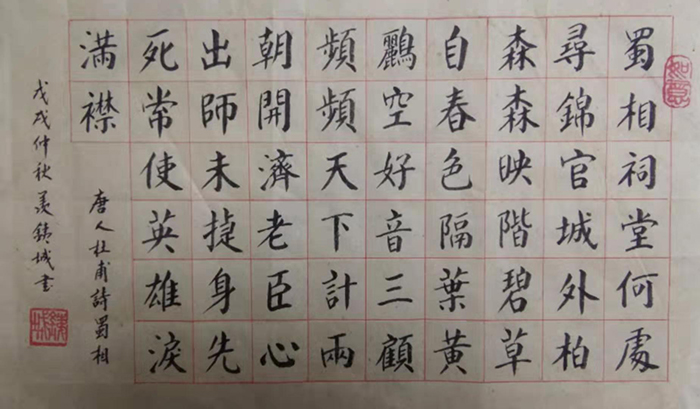 如意
蜀相祠堂何處
尋錦官城外柏
森森映階碧草
自春色隔葉黃
鸝空好音三顧
頻頻天下計兩
朝開濟老臣心
出師未捷身先
死常使英雄淚
滿襟
唐人杜甫詩蜀相
戊戌仲秋城書